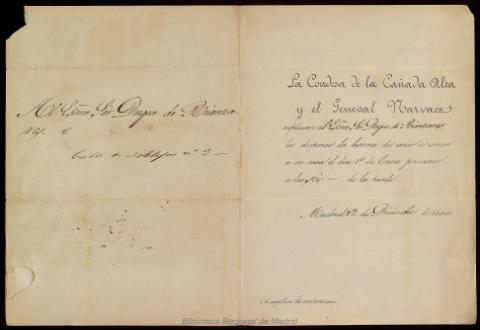 Al Exmo. Sor Duque de
Calle de nº 3
La Condesa de la Cañada Alta
y el General Narvaez
suplican al Exmo. Sor Duque de
les dispense la honra de venir á comer
a su casa el dia 1º de Enero proximo
a las de la tarde
Madrid de Diciembre de
Se suplica la contestacion
Biblioteca Regional de Madrid